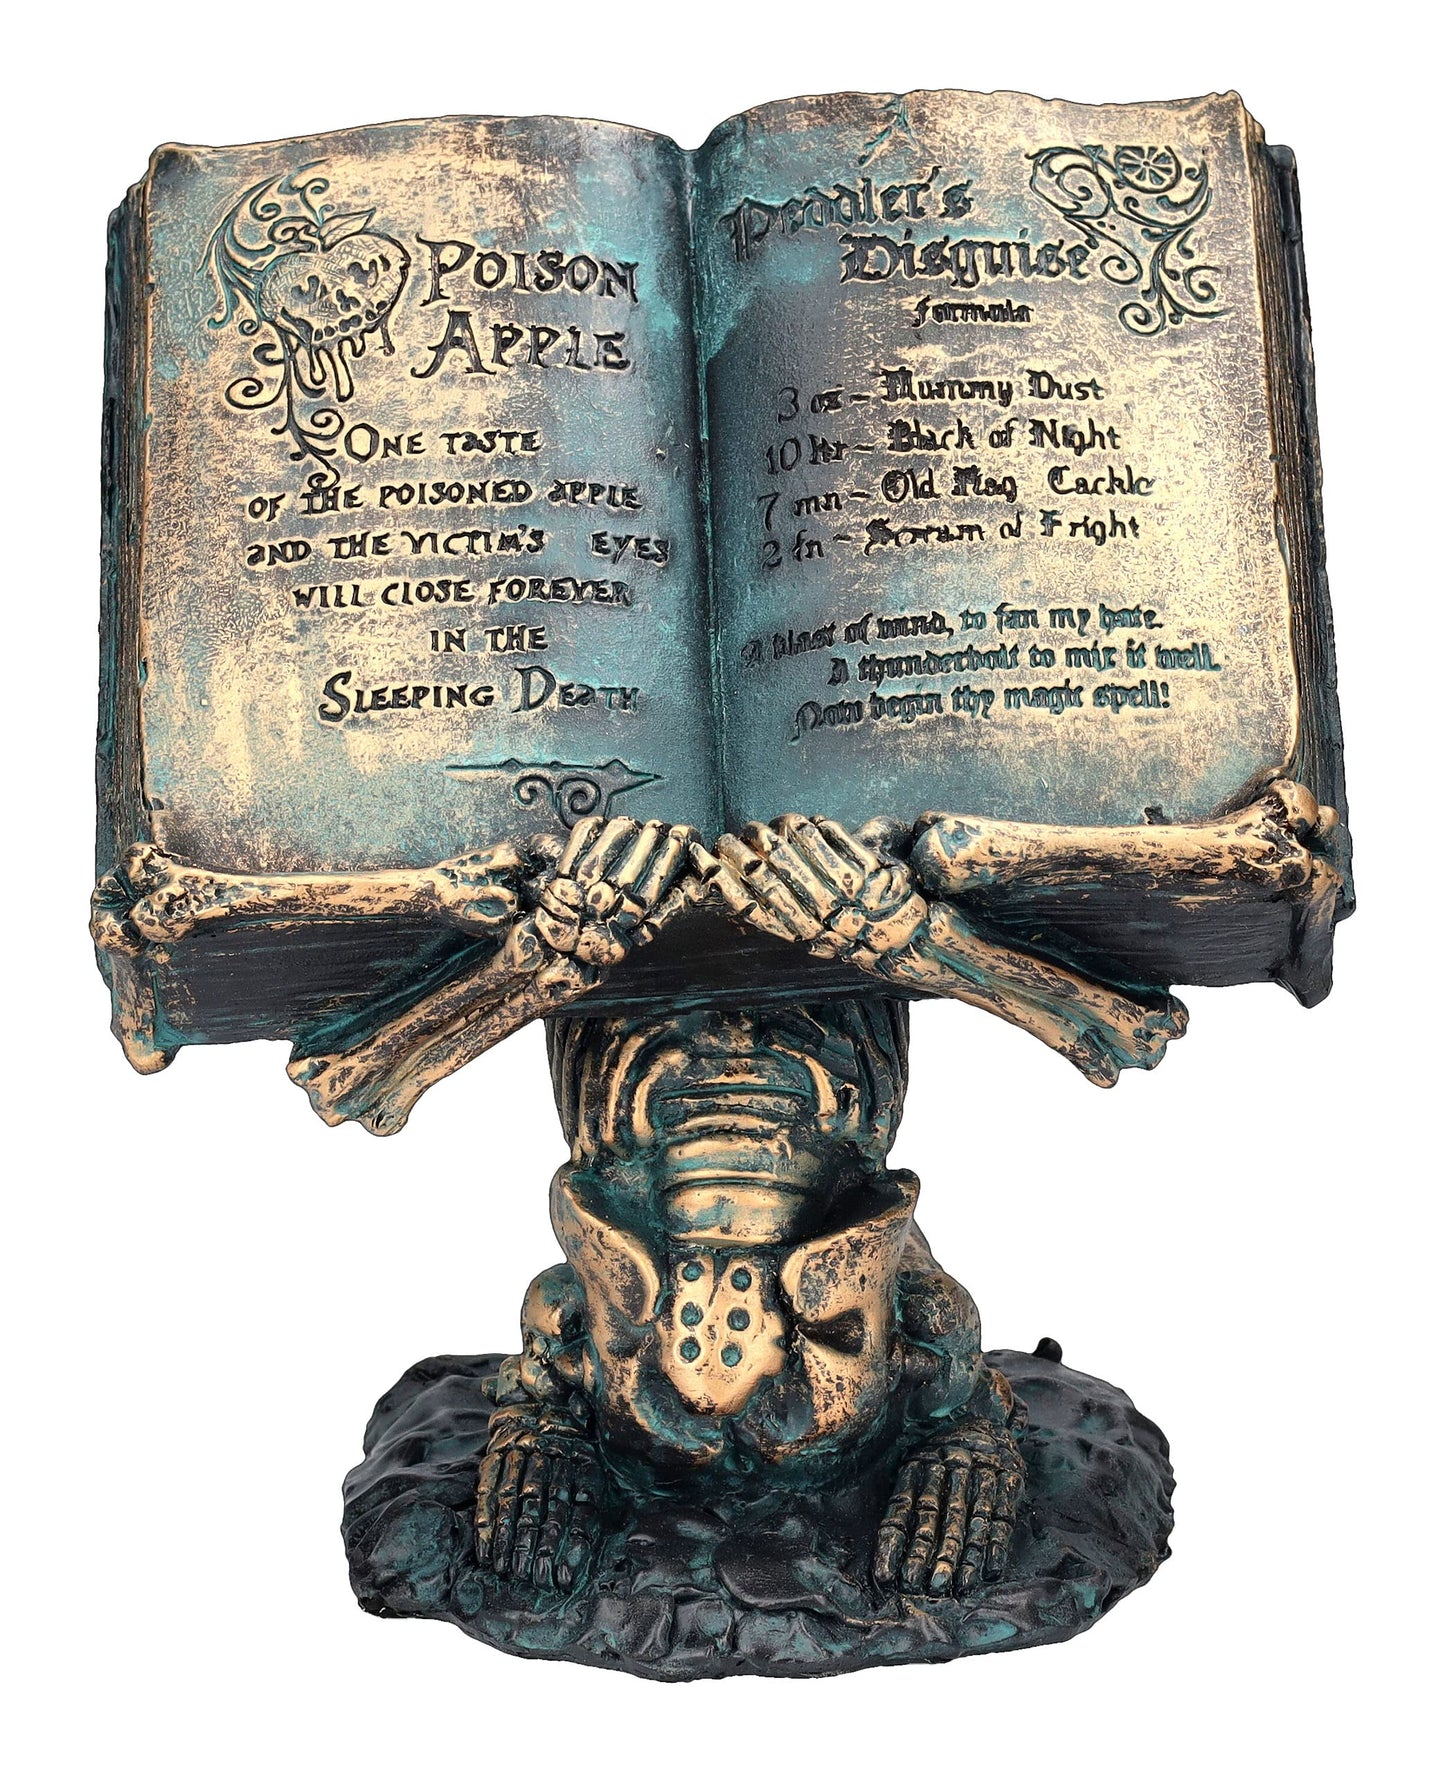 POISON
APPLE
ONE TASTE
OF THE POISONED APPLE
AND THE VICTIM'S EYES
WILL CLOSE FOREVER
IN THE
SLEEPING DEATH
Peddler's
Disguise
formula
3 oz - Mummy Dust
10 hr - Black of Night
7 mn - Old Hag Cackle
2 fn - Scream of Fright
A blast of wind, to fan my hate.
A thunderbolt to mix it well.
Now begin thy magic spell!